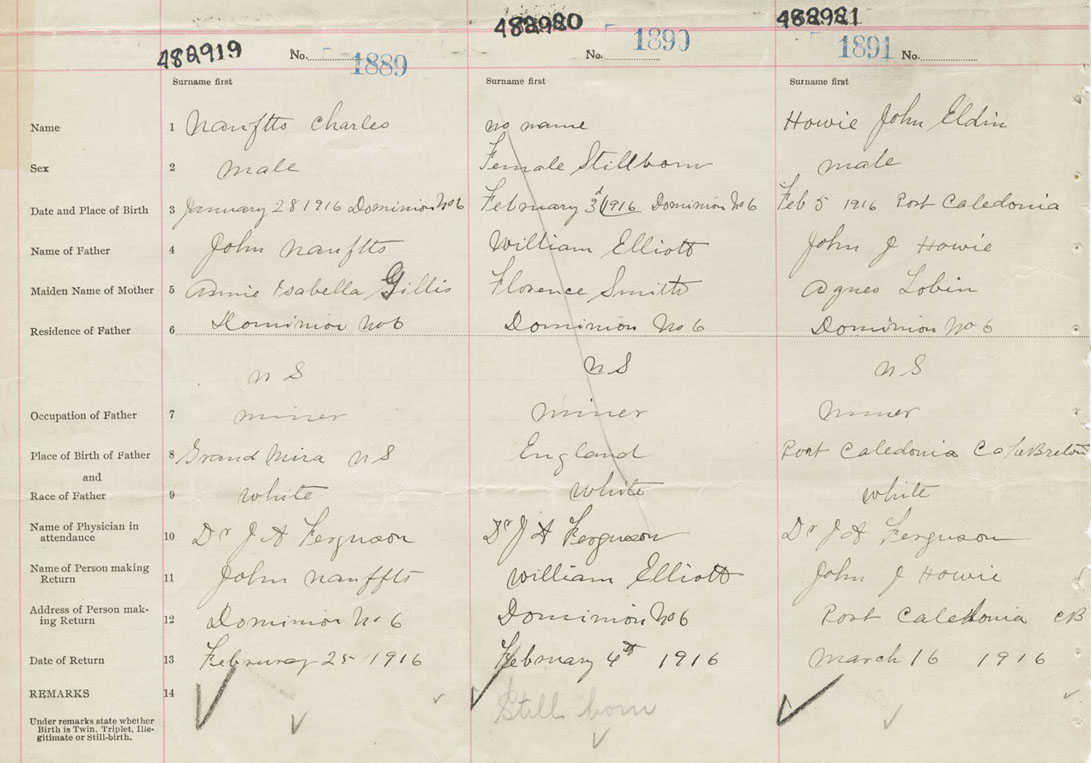 482919 482980 482981
No. 1889 No. 1890 1891 No.
Surname first Surname first Surname first
Name 1 Nauftts Charles no name Howie John Eldin
Sex 2 male Female Stillborn male
Date and Place of Birth 3 January 28 1916 Dominion No 6 February 3d 1916 Dominion No 6 Feb 5 1916 Port Caledonia
Name of Father 4 John Nauftts William Elliott John J Howie
Maiden Name of Mother 5 Annie Isabella Gillis Florence Smith Agnes Lobin
Residence of Father 6 Dominion No 6 Dominion No 6 Dominion No 6
N S N S N S
Occupation of Father 7 miner miner miner
Place of Birth of Father 8 Grand Mira N S England Port Caledonia Cape Breton
and
Race of Father 9 white white white
Name of Physician in
attendance 10 Dr J A Ferguson Dr J A Ferguson Dr J A Ferguson
Name of Person making
Return 11 John Nauffts William Elliott John J Howie
Address of Person mak-
ing Return 12 Dominion No 6 Dominion No 6 Port Caledonia CB
Date of Return 13 Februrey 25 1916 February 4th 1916 March 16 1916
REMARKS 14 Still born
Under remarks state whether
Birth is Twin, Triplet, Ille-
gitimate or Still-birth.